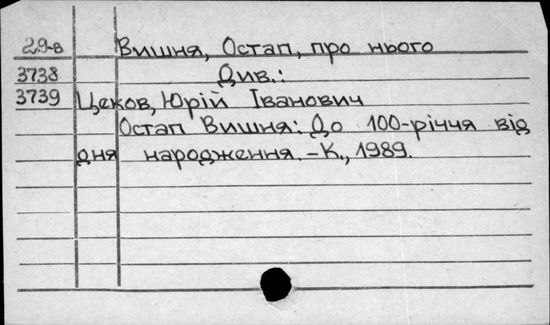 29-в Вишня, Остап, про нього
3738 Див.:
3739 Цеков, Юрій Іванович
Остап Вишня: До 100-річчя від
дня народження. -К., 1989.